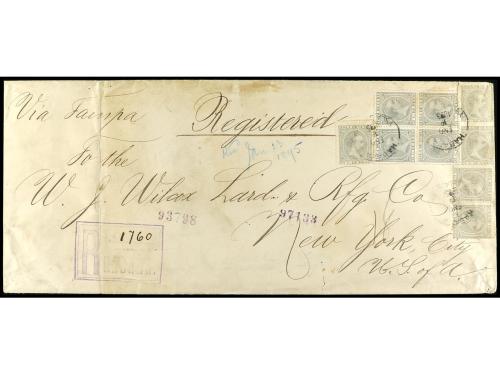 Via Tampa
Registered
Jan 23
1895
To the
W. J. Wilcox Lard & Rfg Co
93798
97138
New York City
U.S. of A.
R
1760